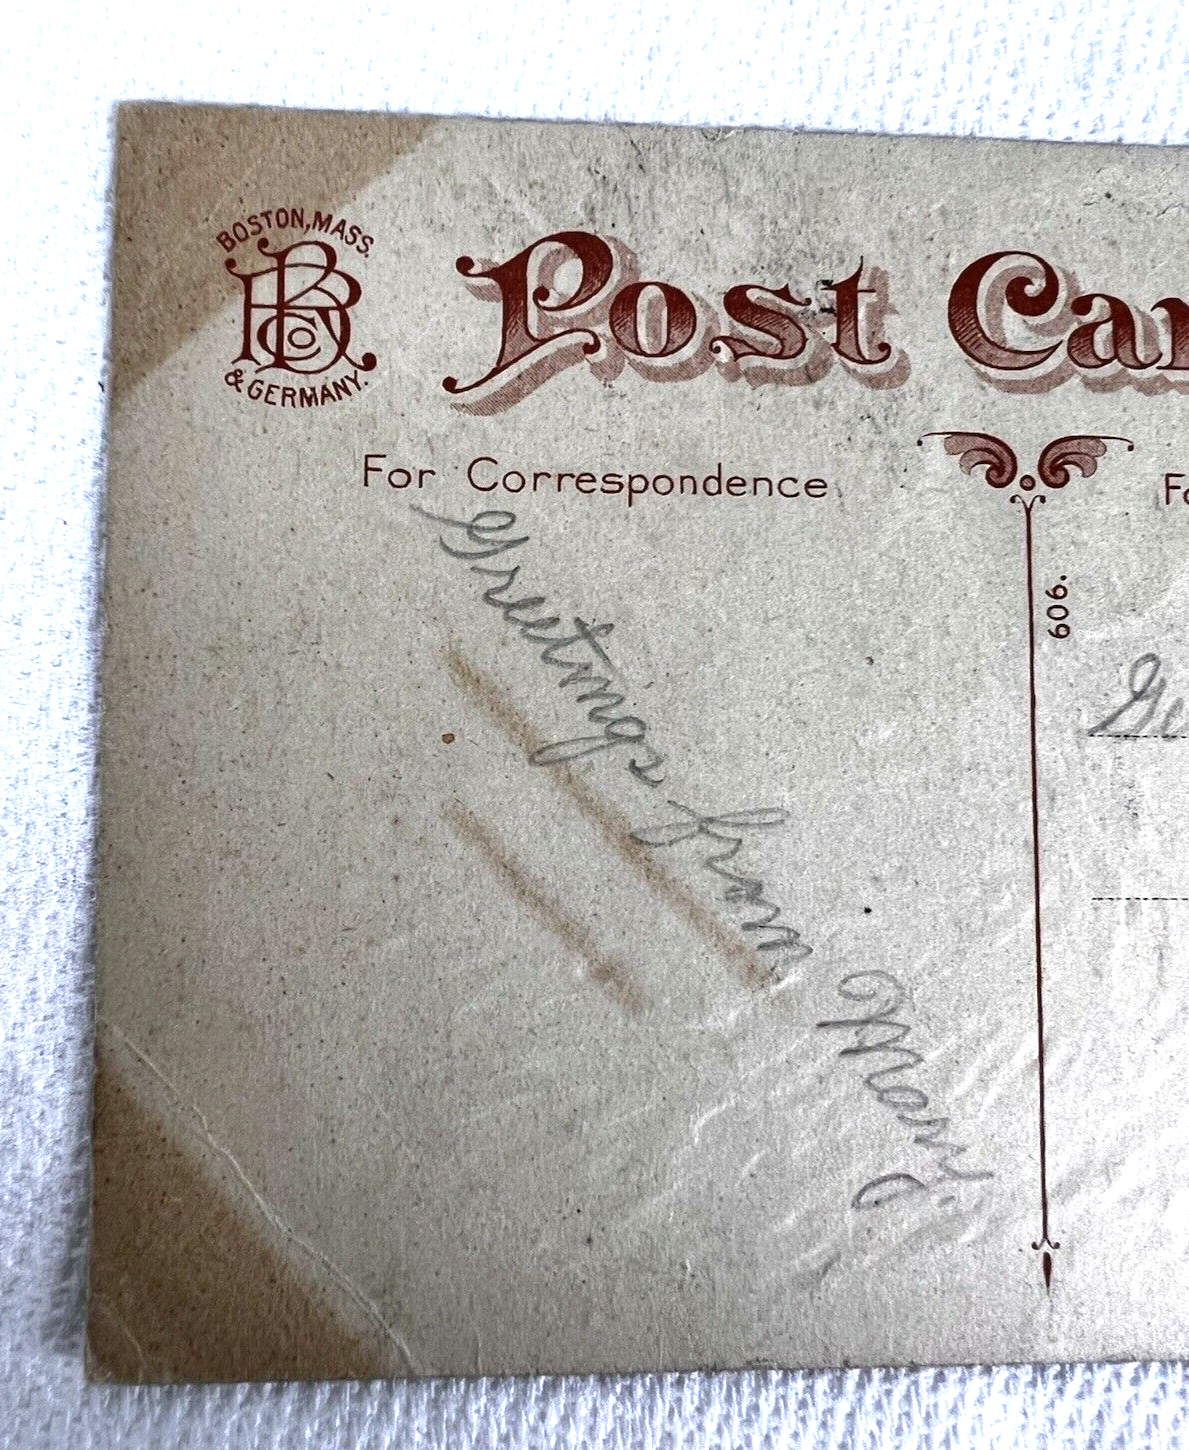 BOSTON, MASS.
& GERMANY.
Post Car
For Correspondence
Fo
606.
Greetings from Mary.
Ge